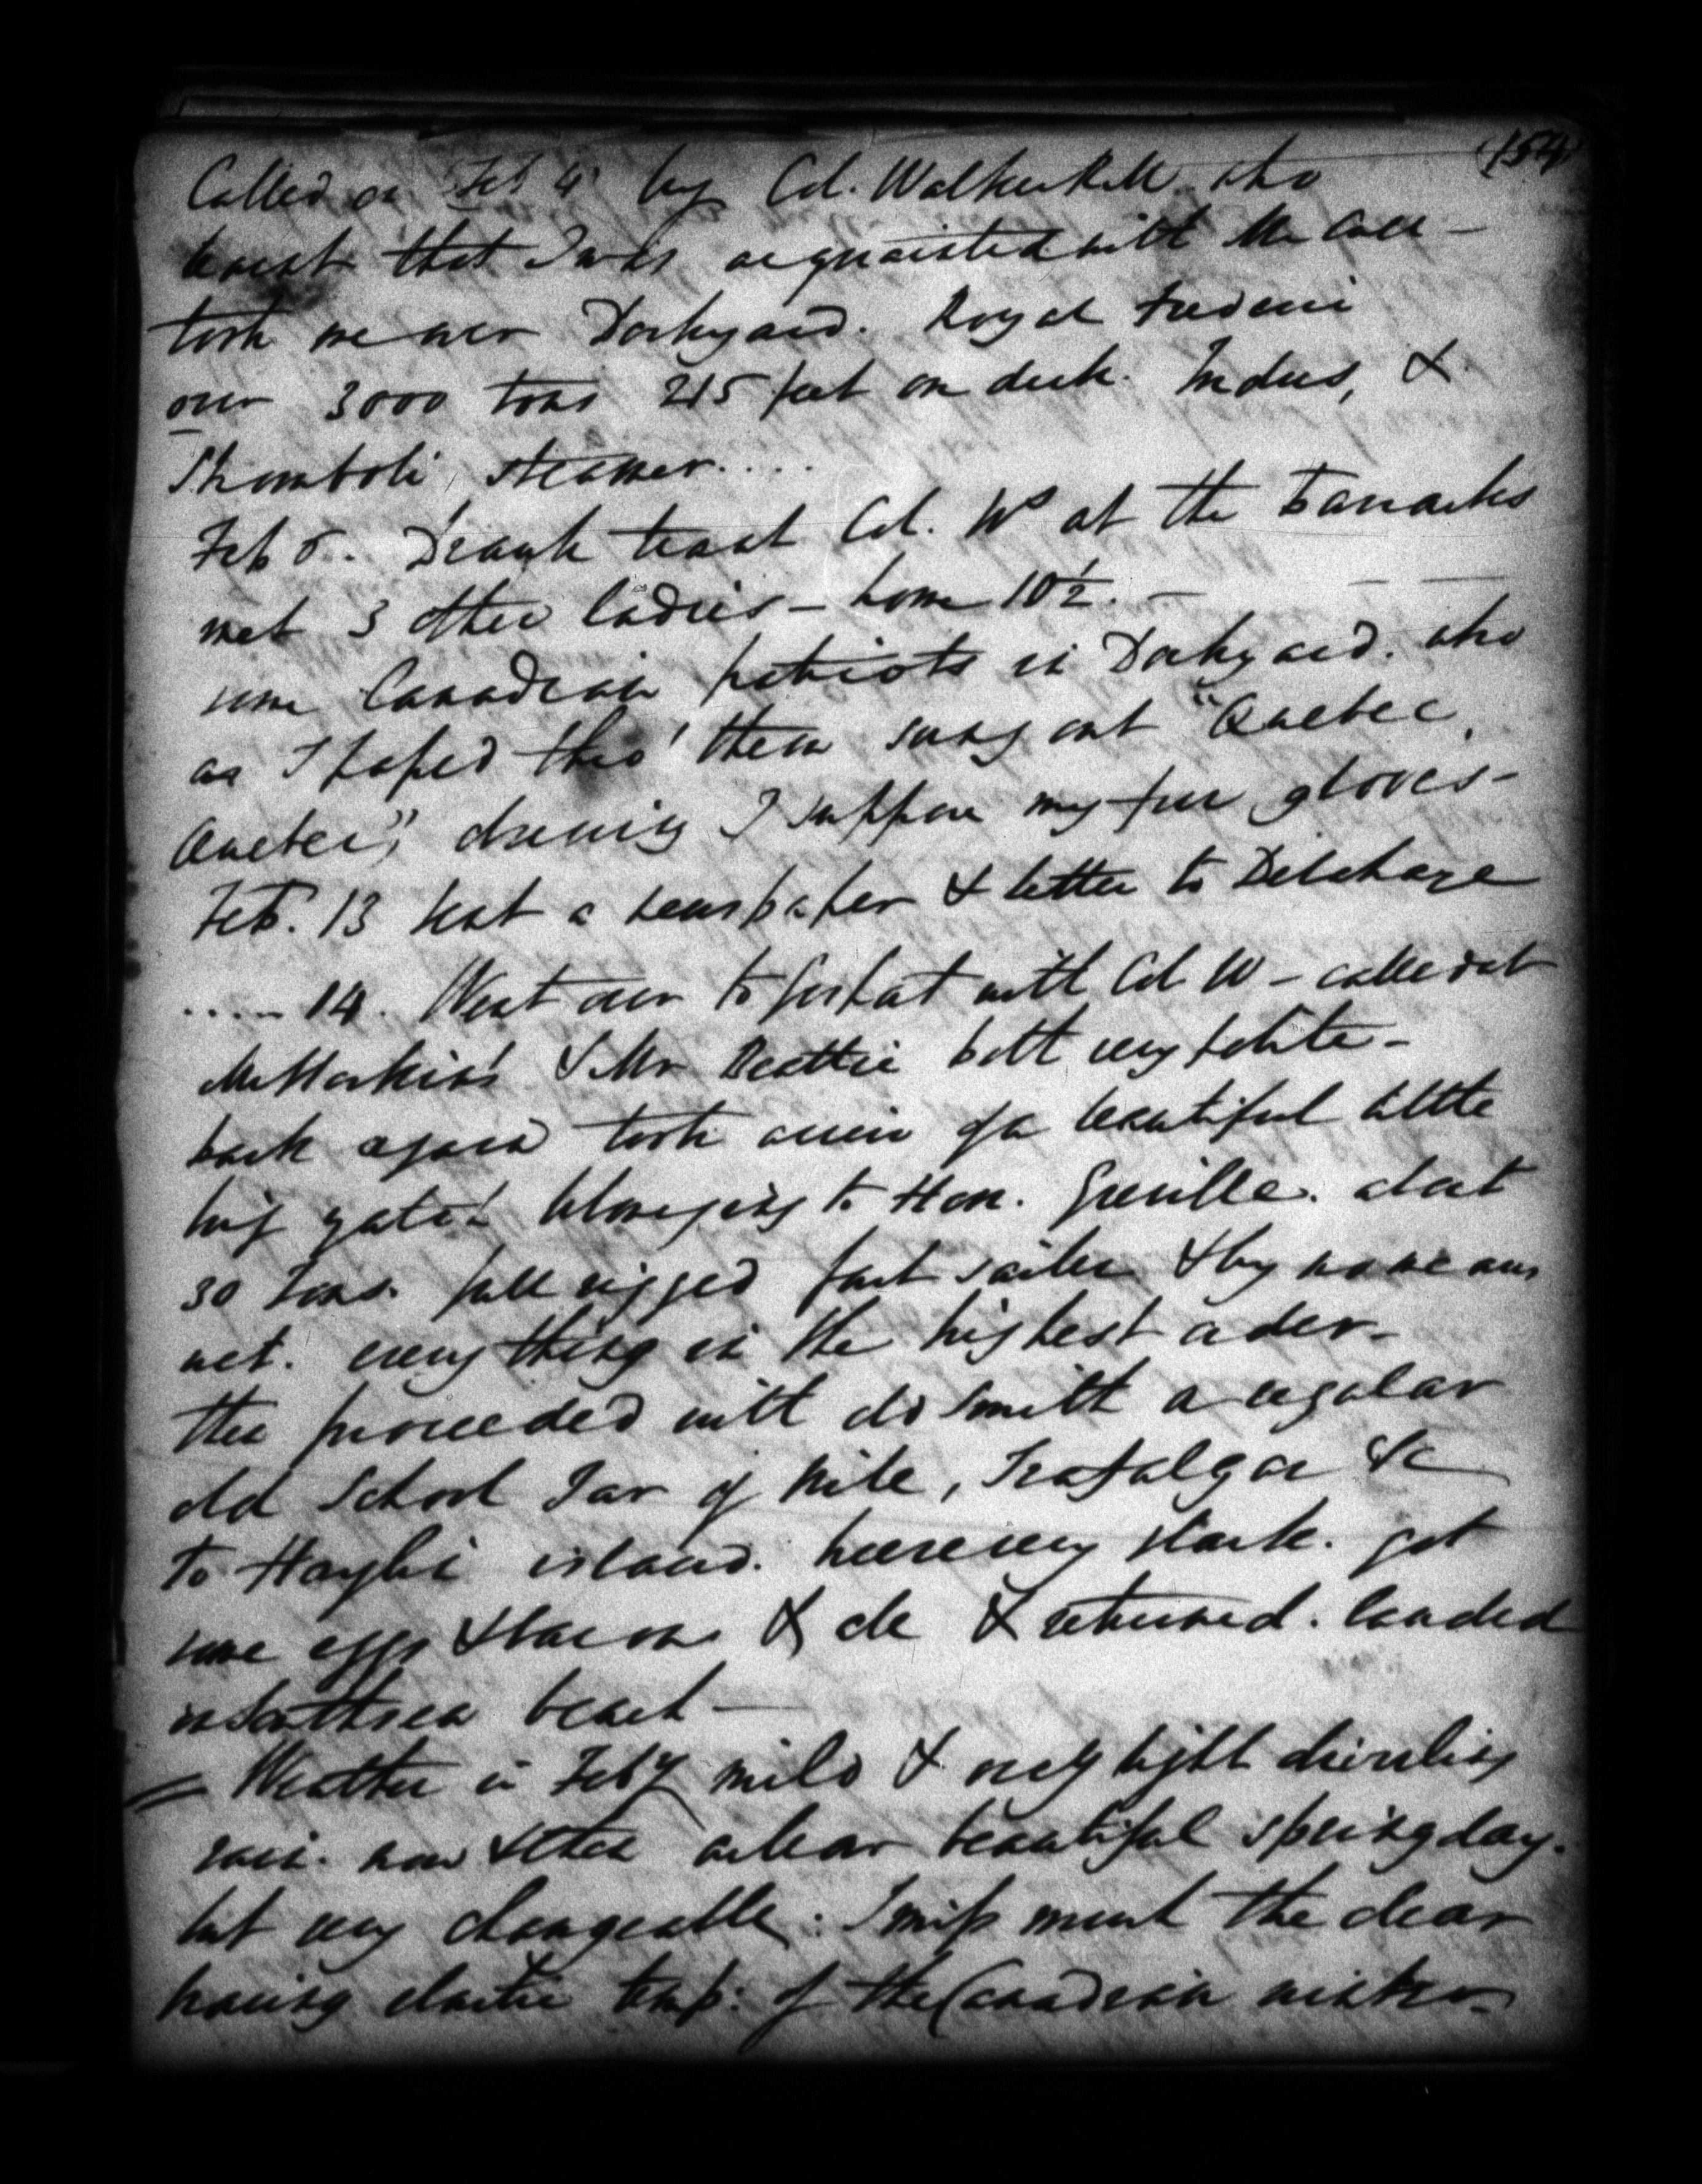 (154)
Called on Feb 4 by Col. Walker R.M. who
learnt that I was acquainted with Mr Call-
took me over Dockyard. Royal Frederic
over 3000 tons 215 feet on deck. Indus, &
Stromboli steamer....
Feb 5.. Drank tea at Col. Ws at the Barracks
met 3 other ladies - home 10½. -
some Canadian patriots in Dockyard. who
as I passed thro' them sung out "Quebec,
Quebec", I suppose my fur gloves -
Feb. 13 sent a newspaper & letter to Delahaye
.....14. Went over to Gosport with Col W - called at
Mr Hoskin's & Mr Beattie both very polite -
back again took a view of a beautiful little
brig belonging to Hon. Greville. about
30 tons. full rigged fast sailer & by no means
wet. every thing in the highest order -
then proceeded with do Smith a regular
old School Tar of Nile, Trafalgar &c
to Hayling island. here very slack. got
some eggs & bacon & ale & returned. landed
on Southsea beach -
= Weather in Feby mild & only light drizzling
rain. now & then a clear beautiful spring day.
but very changeable. I miss much the clear
bracing elastic temp: of the Canadian winter -